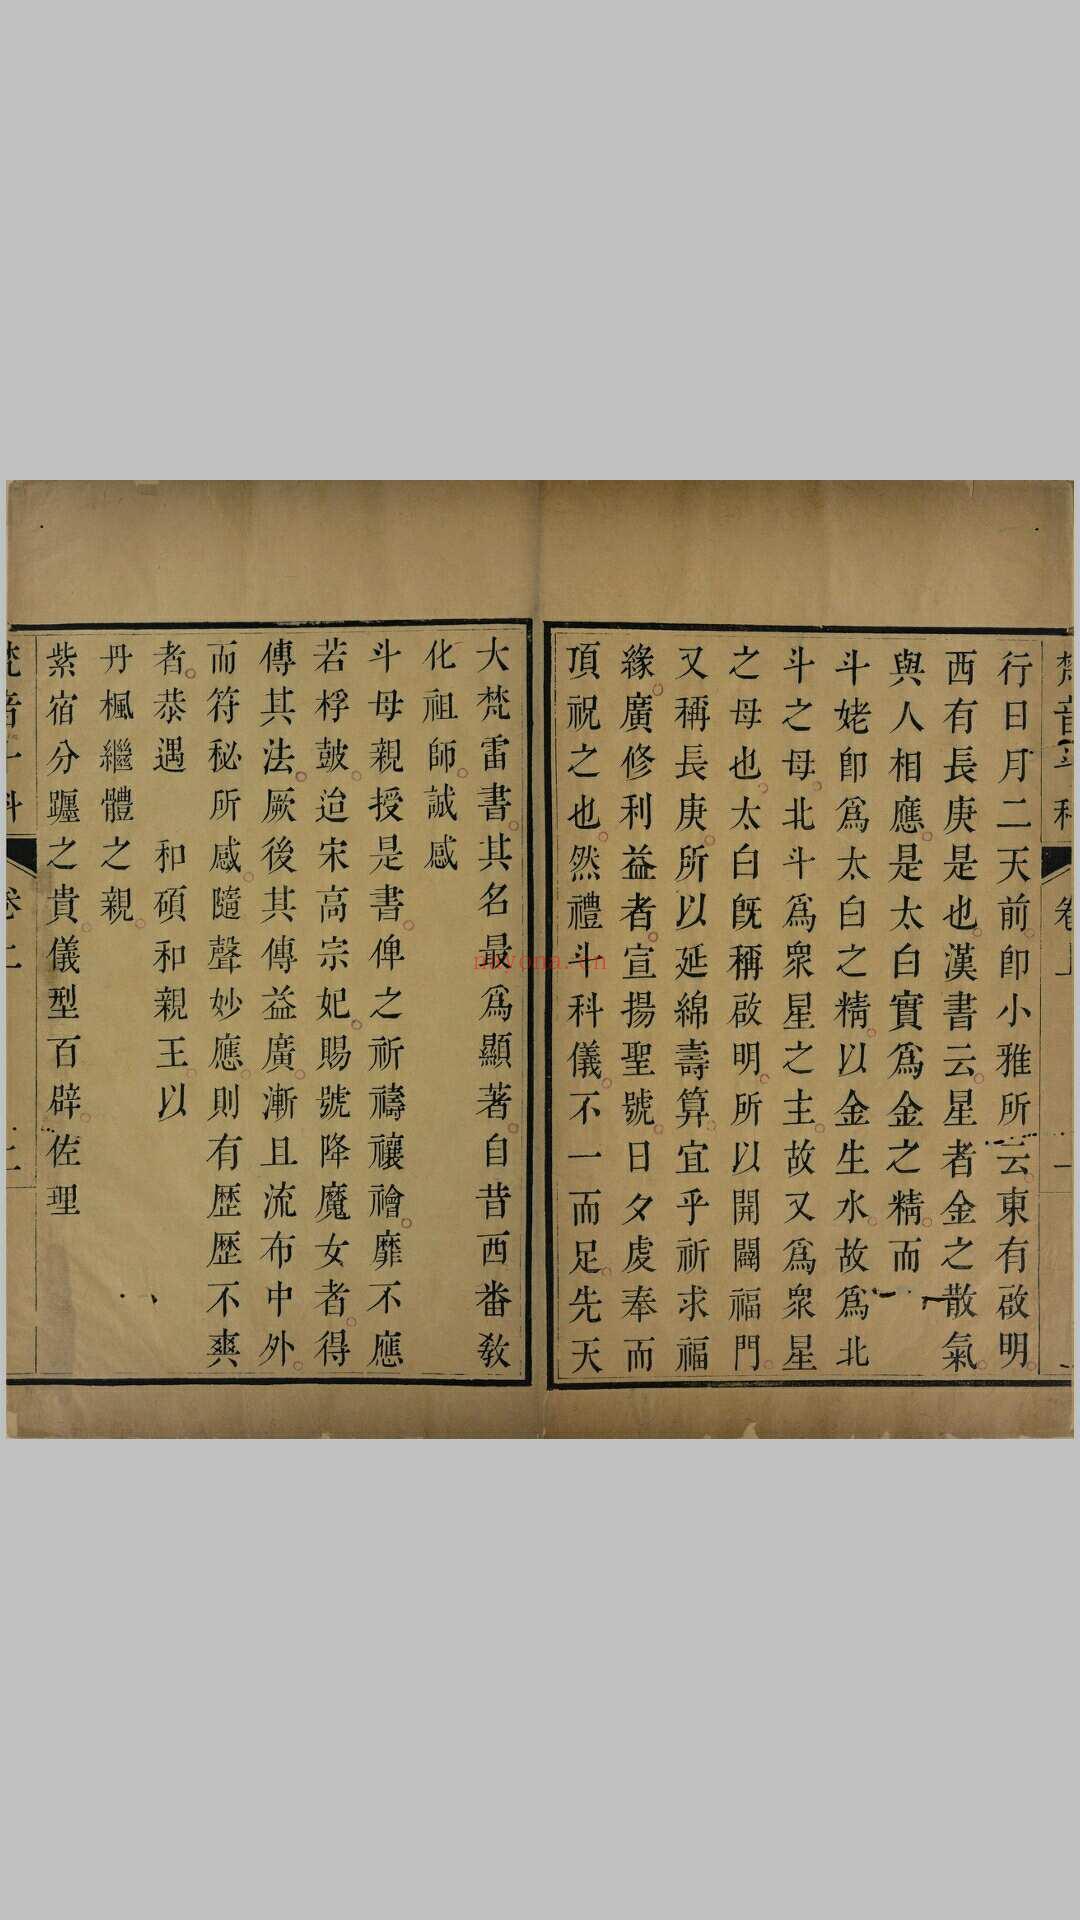 行日月二天前即小雅所云東有啟明
西有長庚是也漢書云星者金之散氣
與人相應是太白實為金之精而
斗姥即為太白之精以金生水故為北
斗之母北斗為眾星之主故又為眾星
之母也太白既稱啟明所以開闢福門
又稱長庚所以延綿壽算宜乎祈求福
緣廣修利益者宣揚聖號日夕虔奉而
頂祝之也然禮斗科儀不一而足先天
大梵雷書其名最為顯著自昔西番教
化祖師誠感
斗母親授是書俾之祈禱禳禬靡不應
若桴鼓迨宋高宗妃賜號降魔女者得
傳其法厥後其傳益廣漸且流布中外
而符秘所感隨聲妙應則有歷歷不爽
者恭遇 和碩和親王以
丹楓繼體之親
紫宿分躔之貴儀型百辟佐理
muyona.cn